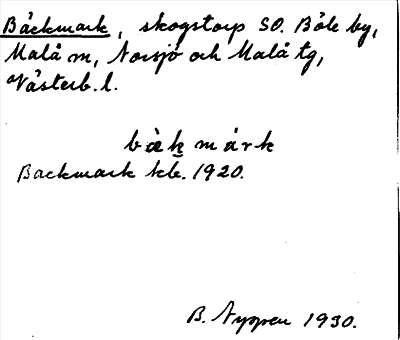 Bäckmark, skogstorp SO. Böle by,
Malå sn, Norsjö och Malå tg,
Västerb. l.
bàkmárk
Backmark kb. 1920.
B. Nyppen 1930.